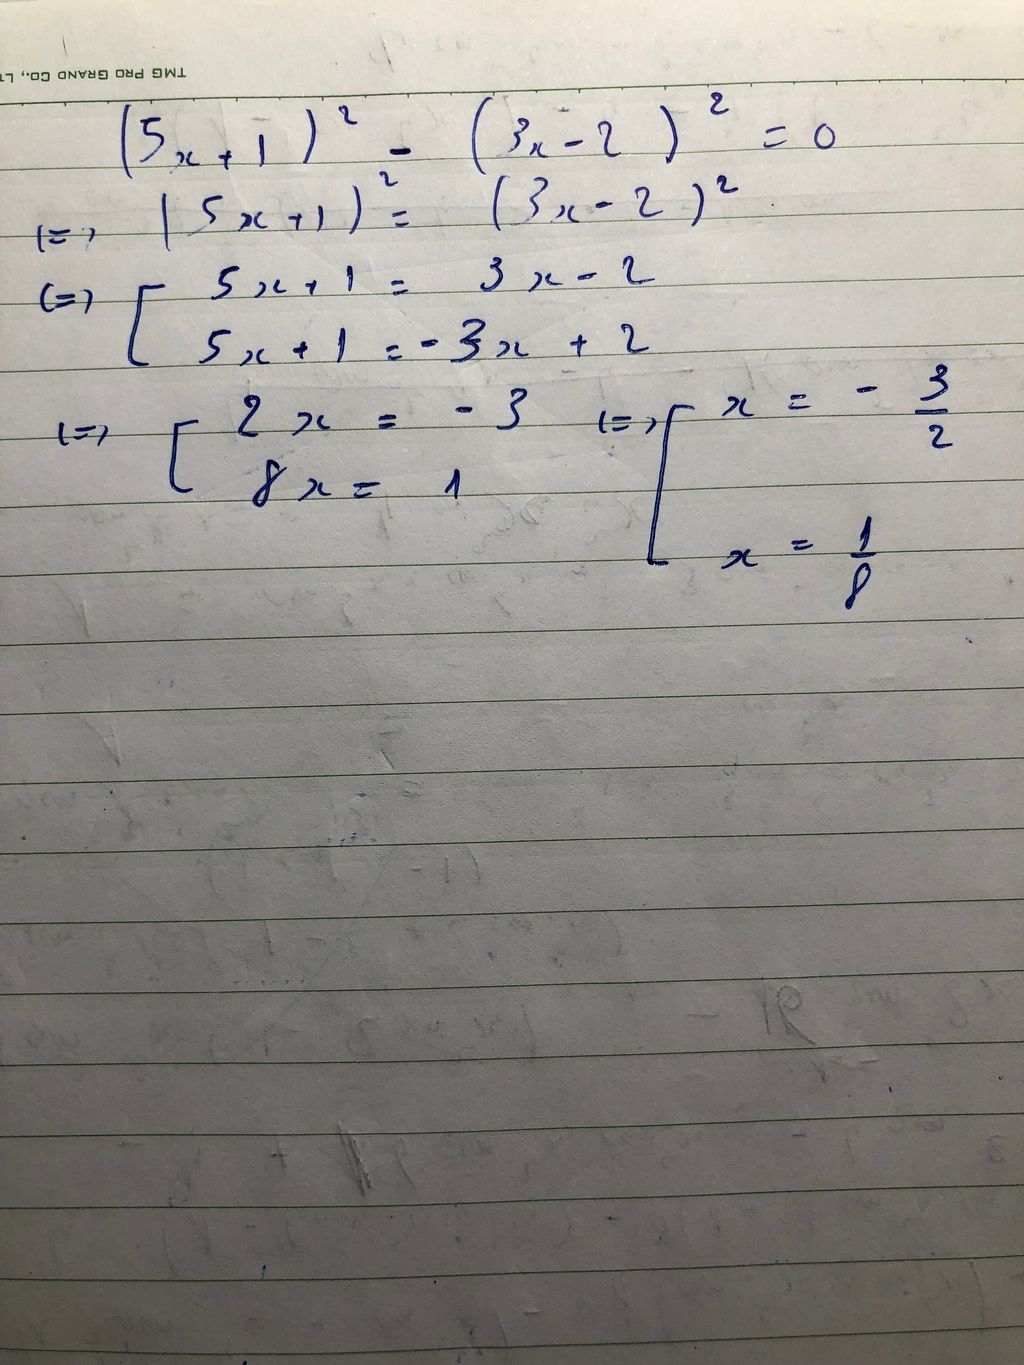 TMG PRO GRAND CO., LT
(5x+1)² - (3x-2)² = 0
(=) (5x+1)² = (3x-2)²
(=) [ 5x+1 = 3x-2
5x+1 = -3x+2
(=) [ 2x = -3 (=) [ x = -3/2
8x = 1
x = 1/8